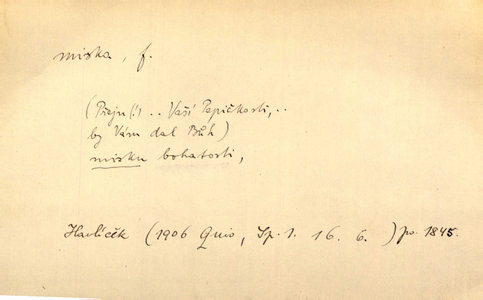 miska, f.
(Přeju (!) .. Vaší Pepičkosti, ..
by Vám dal Bůh)
misku bohatosti,
Havlíček (1906 Quis, Sp. 1. 16. 6.) po. 1845.